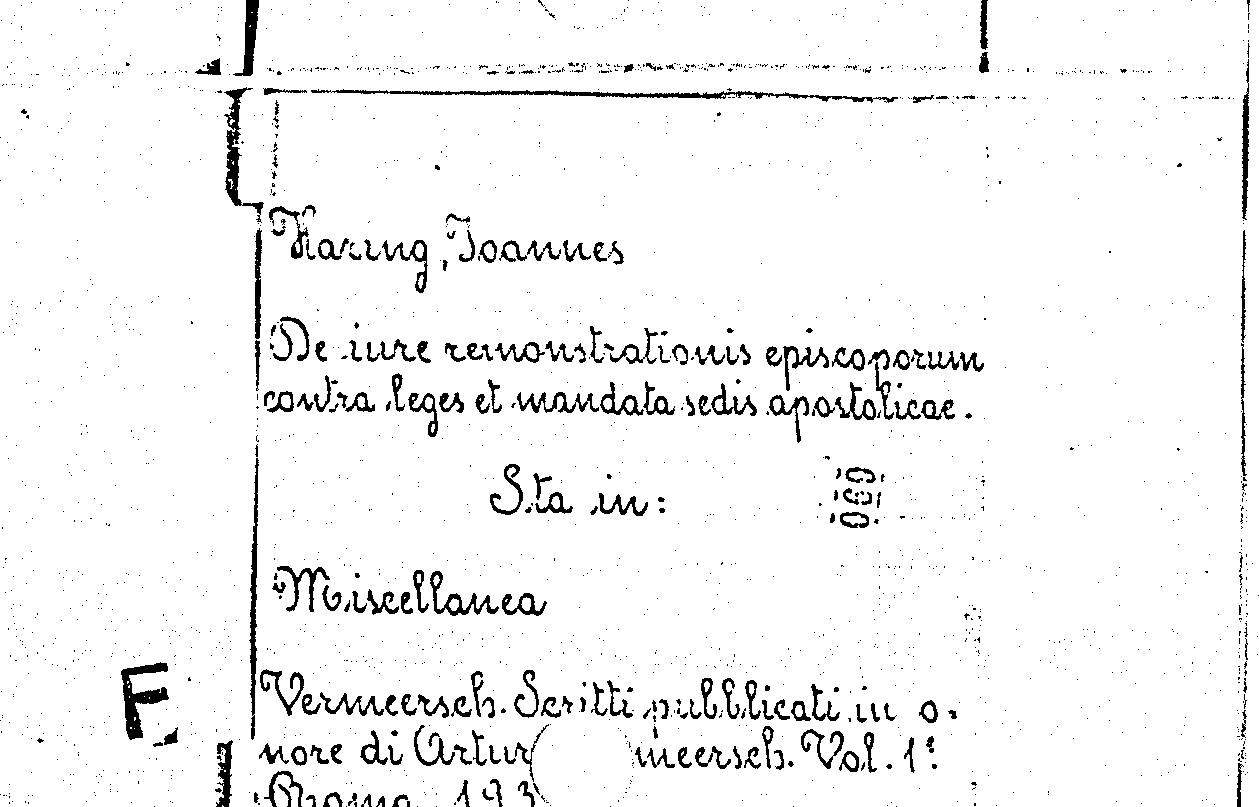 Haring, Joannes
De iure remonstrationis episcoporum
contra leges et mandata sedis apostolicae.
Sta in:
Miscellanea
Vermeersch. Scritti pubblicati in o-
nore di Artur meersch. Vol. 1º
Roma, 193
F